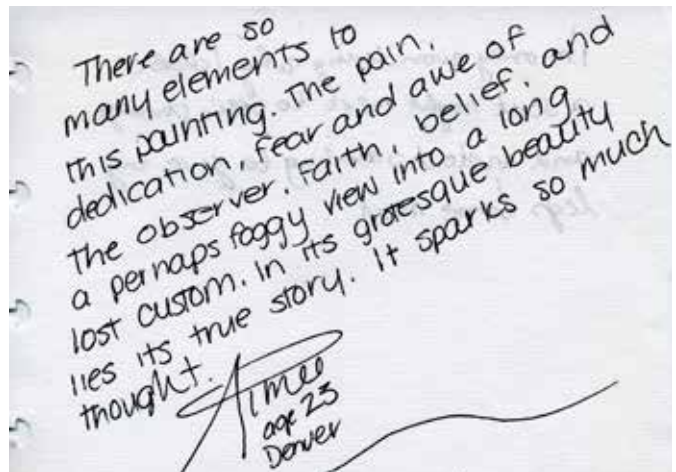 There are so
many elements to
this painting. The pain,
dedication, fear and awe of
the observer. Faith, belief, and
a perhaps foggy view into a long
lost custom. In its grotesque beauty
lies its true story. It sparks so much
thought.
Aimee
age 23
Denver